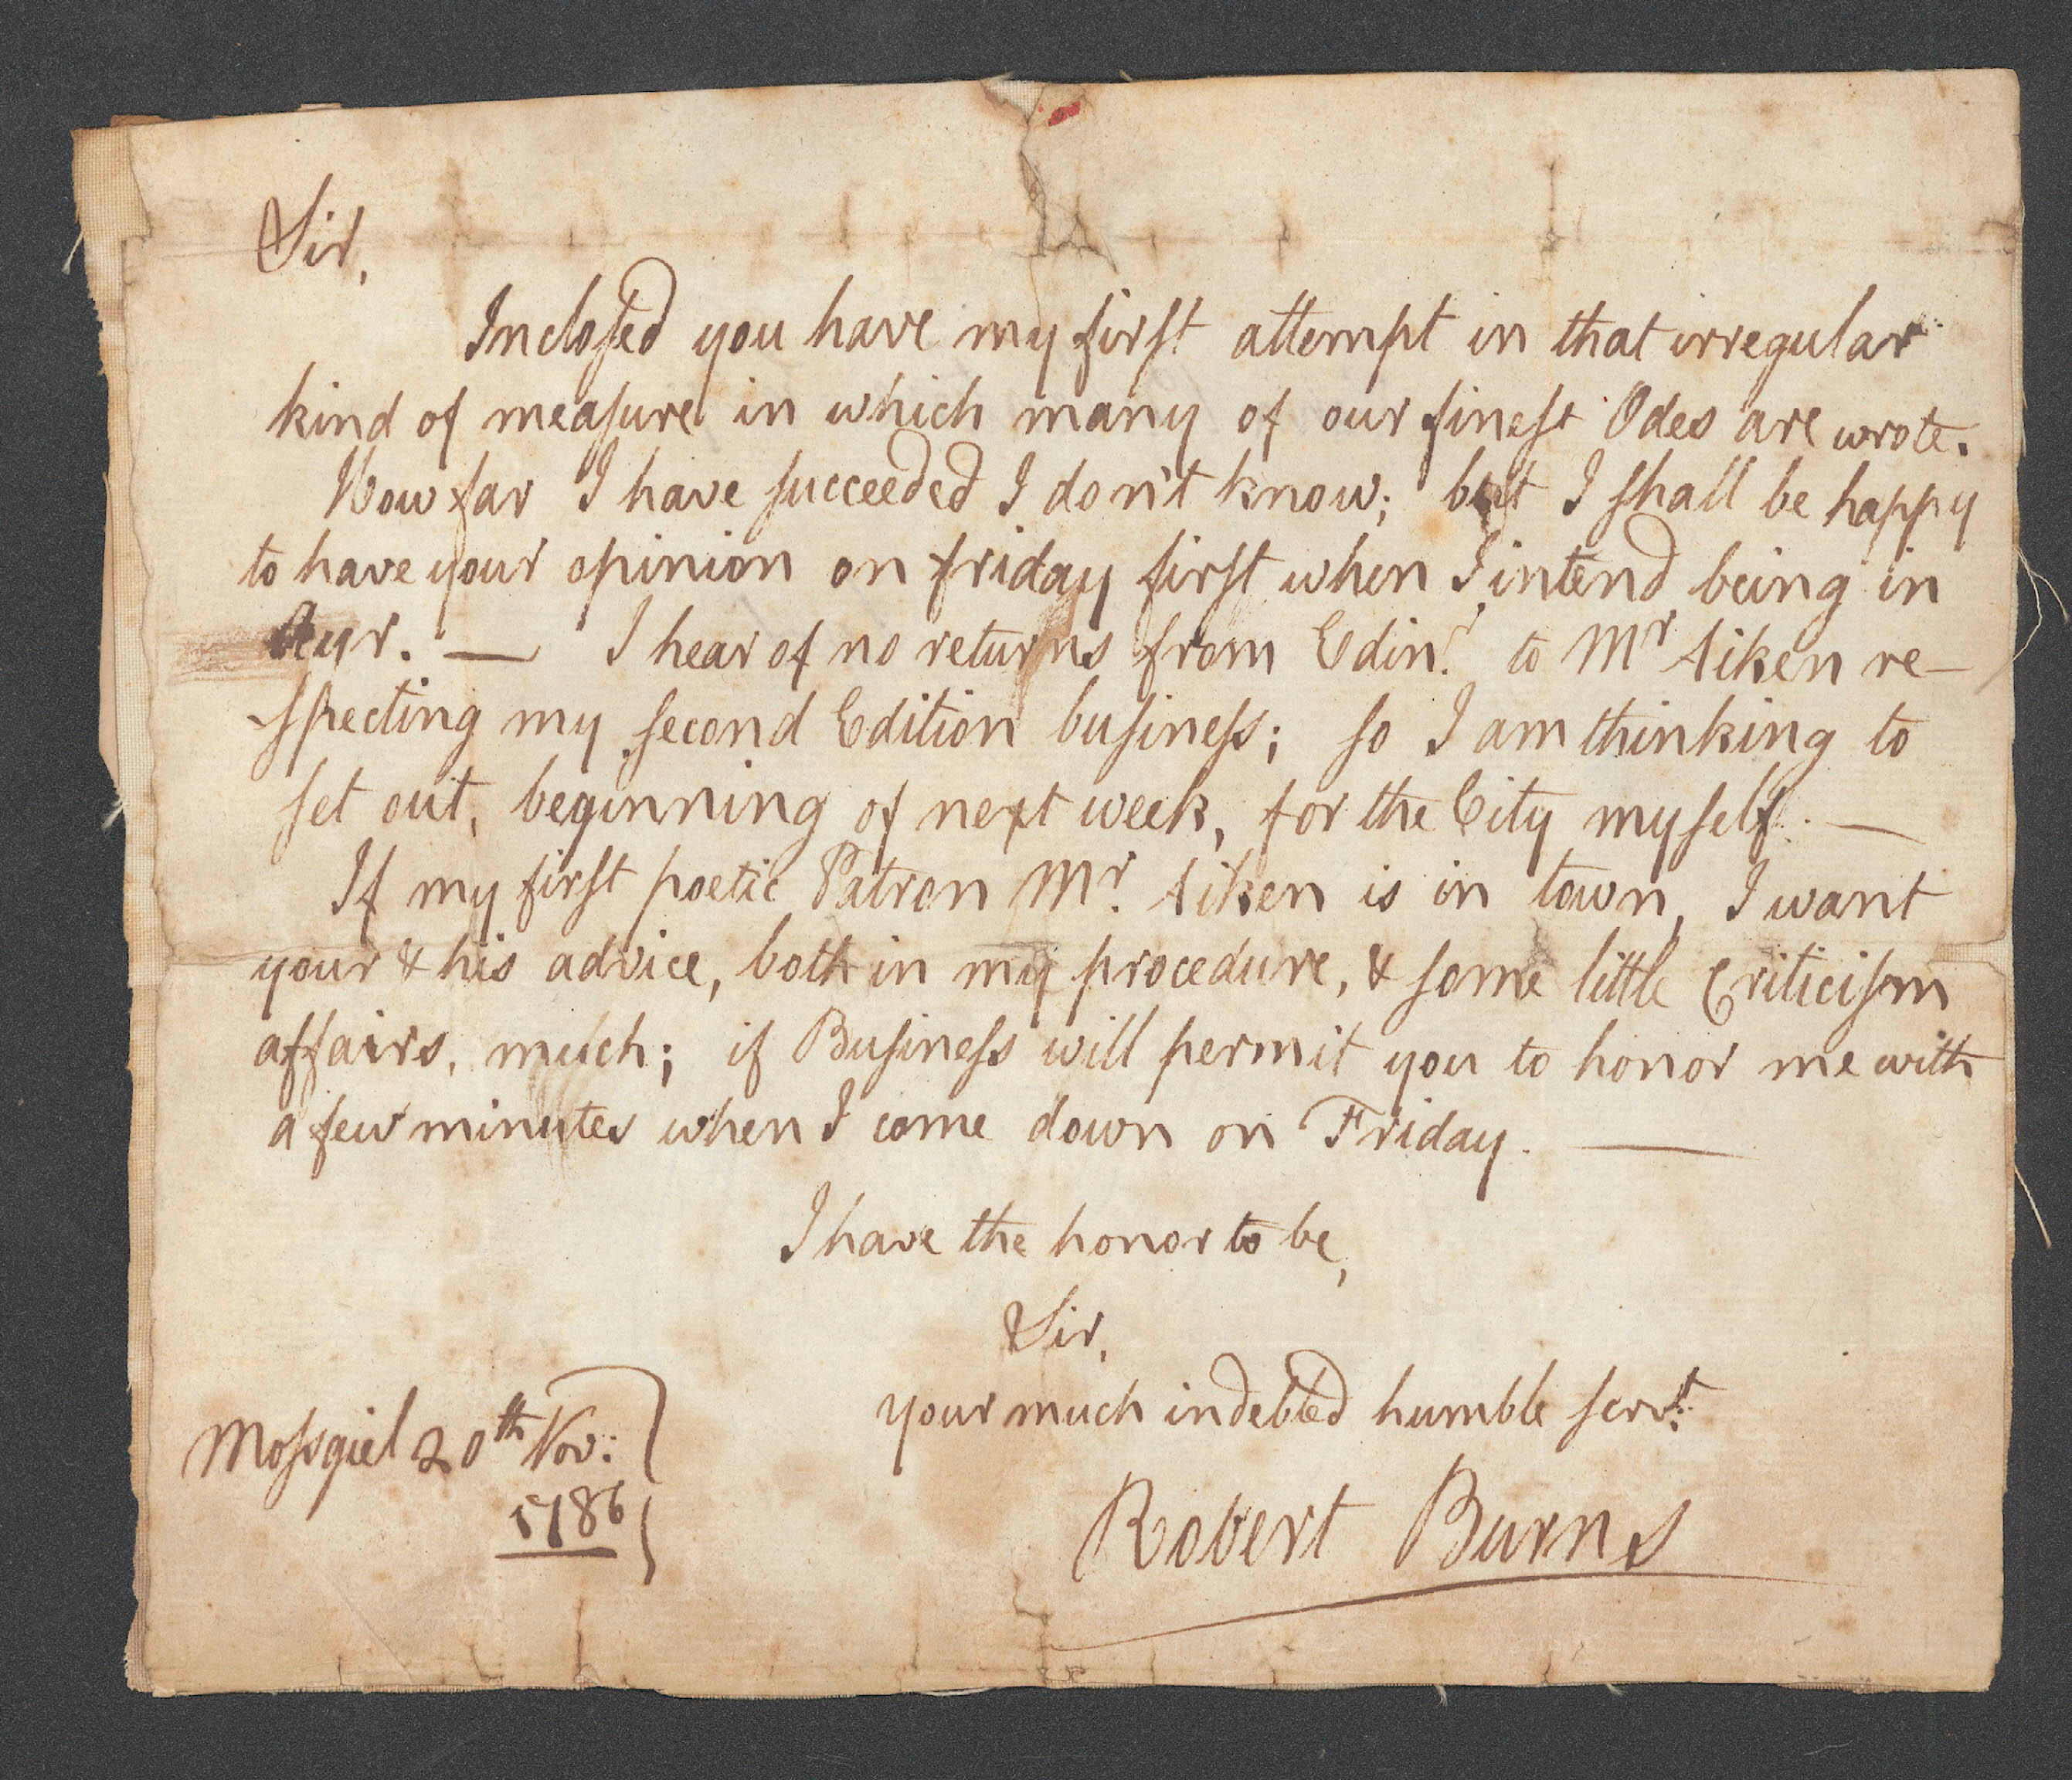 Sir,
Inclosed you have my first attempt in that irregular
kind of measure in which many of our finest Odes are wrote.
How far I have succeeded I don't know; but I shall be happy
to have your opinion on friday first when I intend being in
Ayr. — I hear of no returns from Edinr. to Mr Aiken re-
specting my second Edition business; so I am thinking to
set out, beginning of next week, for the City myself. —
If my first poetic Patron Mr. Aiken is in town, I want
your & his advice, both in my procedure, & some little Criticism
affairs, much; if Business will permit you to honor me with
a few minutes when I come down on Friday. —
I have the honor to be,
Sir,
your much indebted humble servt.
Mossgiel 20th Nov:
1786
Robert Burns